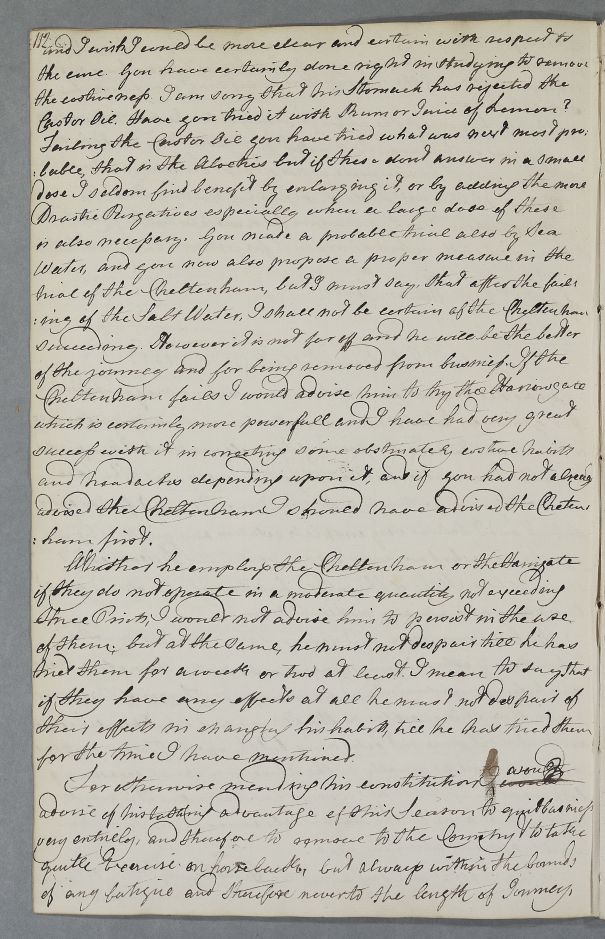 112
and I wish I could be more clear and certain with respect to
the cure. You have certainly done right in studying to remove
the costiveness. I am sorry that his Stomach has rejected the
Castor Oil. Have you tried it with Rum or Juice of Lemon?
Failing the Castor Oil you have tried what was next most pro:
:bable, that is the Aloetics but if these dont answer in a small
dose I seldom find benefit by enlarging it, or by adding the more
Drastic Purgatives especially when a large dose of these
is also necessary. You made a probable trial also by Sea
Water, and you now also propose a proper measure in the
trial of the Cheltenham, but I must say, that after the fail:
:ing of the Salt Water, I shall not be certain of the Cheltenham
succeeding. However it is not far off and he will be the better
of the journey and for being removed from business. If the
Cheltenham fails I would advise him to try the Harrowgate
which is certainly more powerfull and I have had very great
success with it in correcting some obstinately costive habits
and headaches depending upon it, and if you had not already
advised the Cheltenham I should have advised the Chelten
:ham first.
Whither he employs the Cheltenham or the Harrigate
if they do not operate in a moderate quantity not exceeding
three Pints, I would not advise him to persist in the use
of them; but at the same, he must not despair till he has
tried them for a week or two at least. I mean to say that
if they have any effects at all he must not despair of
their effects in changing his habit, till he has tried them
for the time I have mentioned.
For otherwise mending his constitution I would
advise of his taking advantage of this Season to quit business
very entirely, and therefore to remove to the Country to take
gentle Exercise on horseback, but always within the bounds
of any fatigue and therefore never to the length of Journeys,